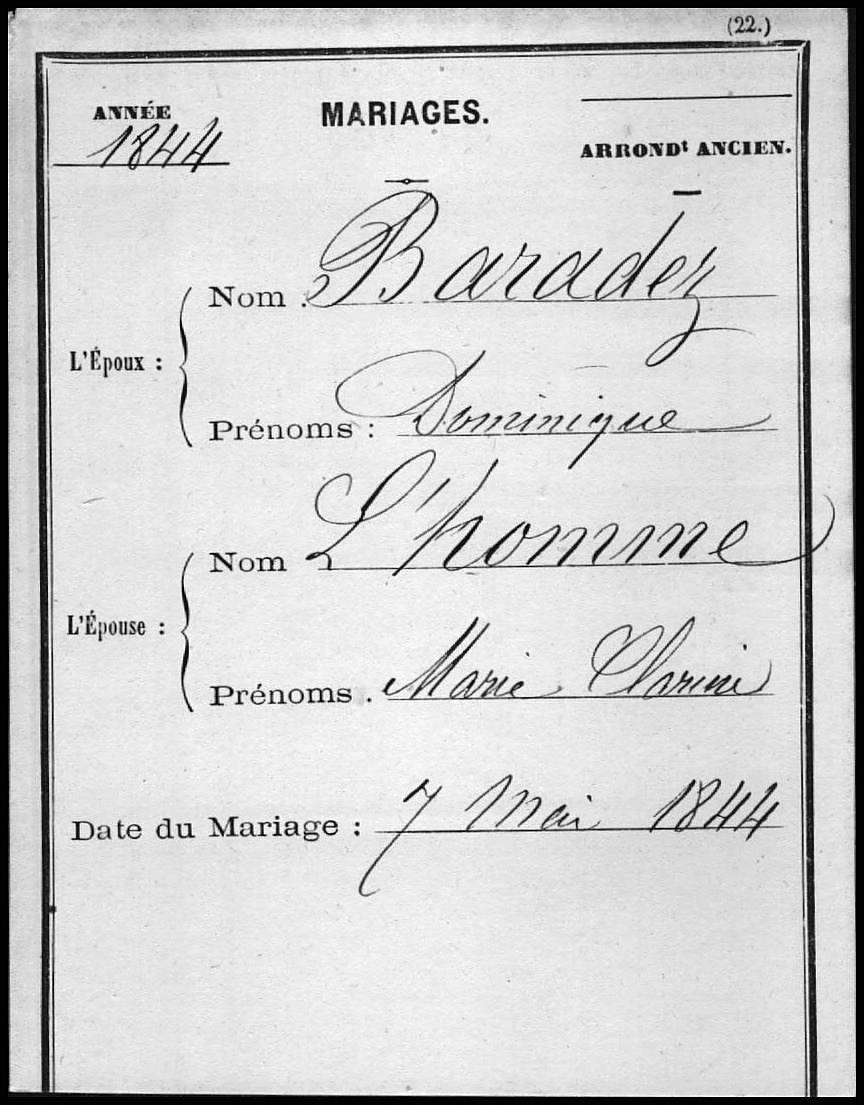 (22.)
ANNÉE
1844
MARIAGES.
ARRONDt ANCIEN.
L'Époux :
Nom : Baradez
Prénoms : Dominique
L'Épouse :
Nom L'homme
Prénoms . Marie
Date du Mariage : 7 Mai 1844